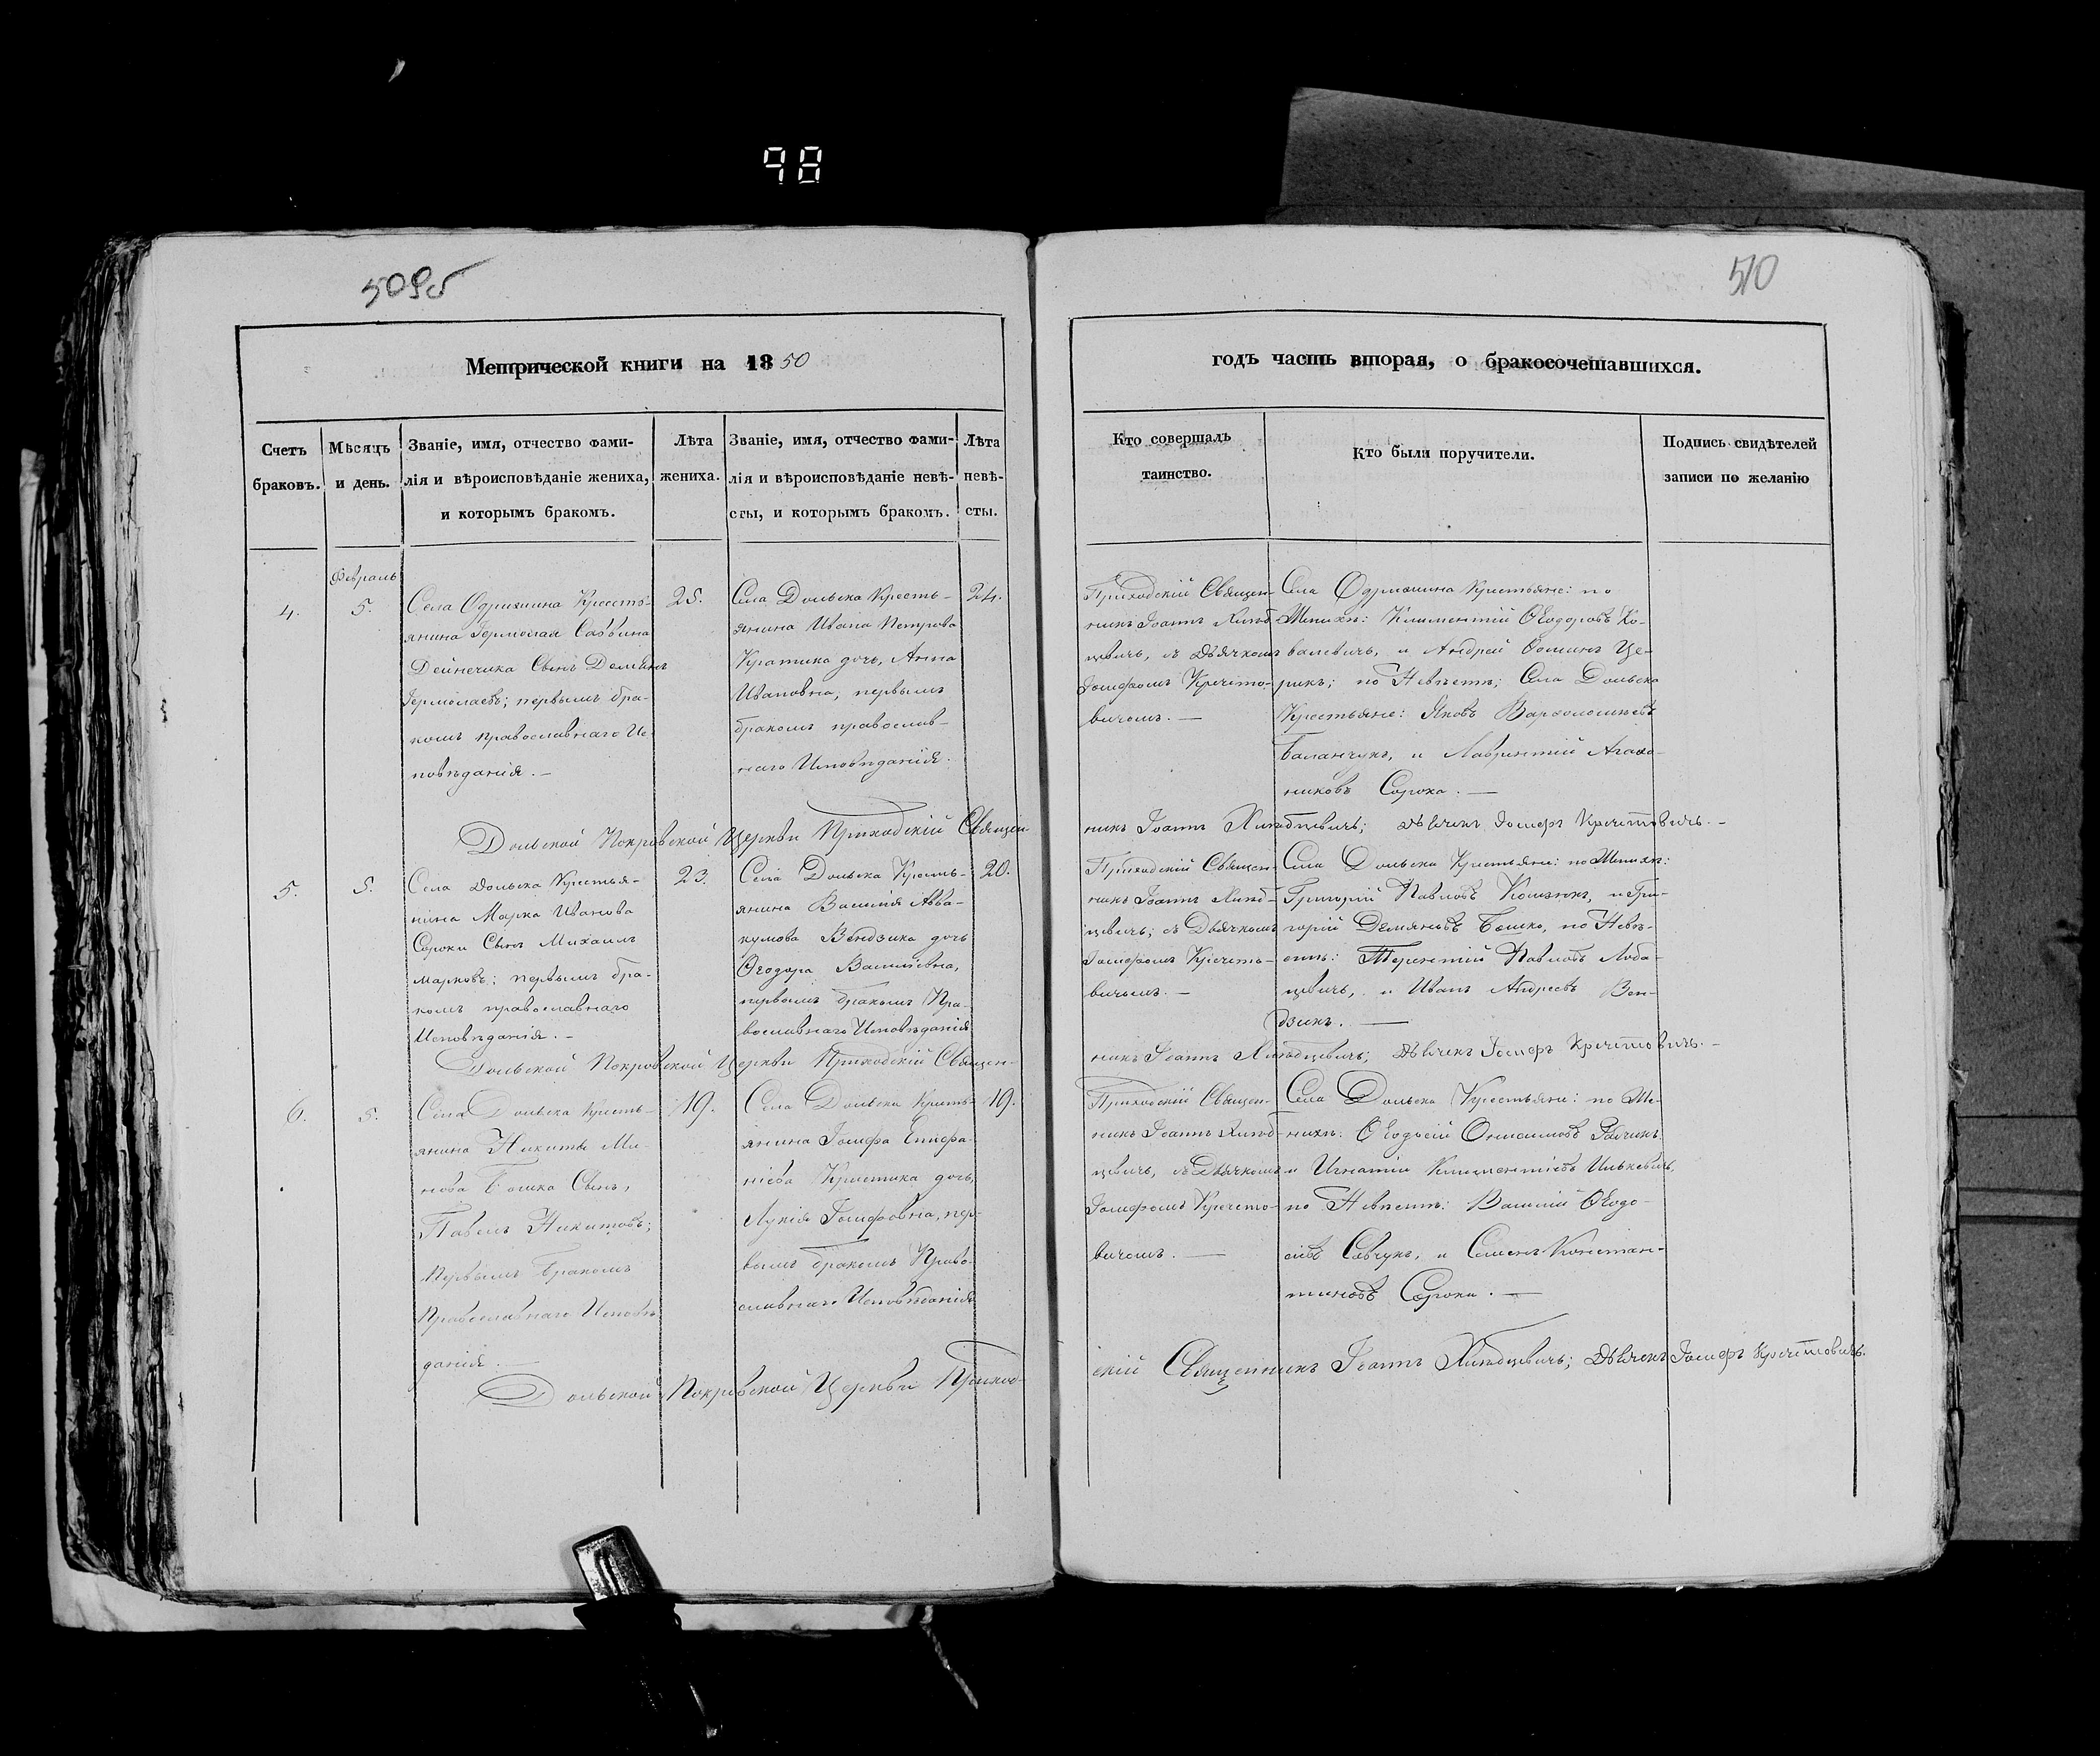 98
509об
510
Метрической книги на 1850
годъ часть вторая, о бракосочетавшихся.
Счетъ
браковъ.
Мѣсяцъ
и день.
Званіе, имя, отчество фами-
лія и вѣроисповѣданіе жениха,
и которымъ бракомъ.
Лѣта
жениха.
Званіе, имя, отчество фами-
лія и вѣроисповѣданіе невѣ-
сты, и которымъ бракомъ.
Лѣта
невѣ-
сты.
Кто совершалъ
таинство.
Кто были поручители.
Подпись свидѣтелей
записи по желанію
4.
Февраль
5.
Села Одрижина Кресть-
янина Іермолая Саввина
Дейнечика Сынъ Демьянъ
Іермолаевъ; первымъ бра-
комъ православнаго Ис-
повѣданія. —
25.
Села Дольска Кресть-
янина Ивана Петрова
Кратика дочь, Анна
Ивановна, первымъ
бракомъ православ-
наго Исповѣданія.
24.
Приходскій Священ-
никъ Іоаннъ
цевичь, съ Дьячкомъ
Іосифомъ Кречето-
вичомъ. —
Села Одрижина Крестьяне: по
Женихѣ: Климентій Ѳеодоровъ Ко-
валевичь, и Андрей Ѳоминъ Це-
рикъ; по Невѣстѣ; Села Дольска
Крестьяне: Яковъ Варѳоломѣевъ
Баланчукъ, и Лаврентій Агаѳо-
никовъ Сорока. —
Дольской Покровской Церкви Приходскій Священ-
никъ Іоаннъ Дьячекъ Іосифъ Кречетовичъ. —
5.
5.
Села Дольска Крестья-
нина Марка Иванова
Сороки Сынъ Михаилъ
Марковъ; первымъ бра-
комъ православнаго
Исповѣданія. —
23.
Села Дольска Кресть-
янина Василія Авва-
кумова Вендзика дочь
Ѳеодора Васильевна,
первымъ бракомъ Пра-
вославнаго Исповѣданія
20.
Приходскій Священ-
никъ Іоаннъ
цевичь; съ Дьячкомъ
Іосифомъ Кречето-
вичомъ. —
Села Дольска Крестьяне: по Женихѣ:
Григорій Павловъ и Гри-
горій Демяновъ Бошко, по Невѣ-
стѣ: Терентій Павловъ Лоба-
цевичь, и Иванъ Андреевъ Вен-
дзикъ. —
Дольской Покровской Церкви Приходскій Священ-
никъ Іоаннъ Дьячекъ Іосифъ Кречетовичъ. —
6.
5.
Села Дольска Кресть-
янина Никиты Ми-
нова Бошка Сынъ,
Павелъ Никитовъ;
Первымъ Бракомъ
Православнаго Исповѣ-
данія. —
19.
Села Дольска Кресть-
янина Іосифа Епифа-
ніева Крыстика дочь,
Лукія Іосифовна, пер-
вымъ бракомъ Право-
славнаго Исповѣданія
19.
Приходскій Священ-
никъ Іоаннъ
цевичь, съ Дьячкомъ
Іосифомъ Кречето-
вичомъ. —
Села Дольска Крестьяне: по Же-
нихѣ: Ѳеодосій Онисимовъ
и Игнатій Климентіевъ Илькевичь,
по Невѣстѣ: Василій Ѳеодо-
сіевъ Савчукъ, и Семенъ Констан-
тиновъ Сорока. —
Дольской Покровской Церкви Приход-
скій Священникъ Іоаннъ Дьячекъ Іосифъ Кречетовичъ.